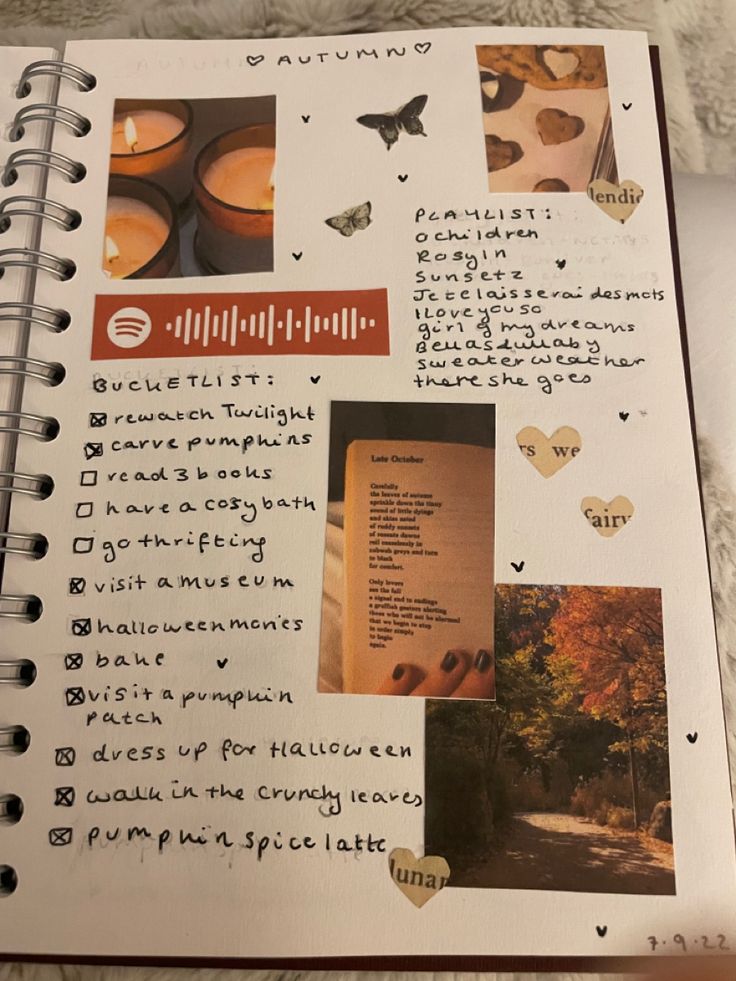 ♡ AUTUMN ♡
lendid
PLAYLIST:
achildren
Rosyln
Sunsetz
Jetelaisserai desmots
Iloveyouso
girl of my dreams
Bellas lullaby
sweater weather
there she goes
BUCKETLIST:
☒ rewatch Twilight
☒ carve pumpkins
☐ read 3 books
☐ have a cosy bath
☐ go thrifting
☒ visit a museum
☒ halloween movies
☒ bake
☒ visit a pumpkin
patch
☒ dress up for Halloween
☒ walk in the crunchy leaves
☒ pumpkin spice latte
Late October
Carefully
the leaves of autumn
sprinkle down the tinny
sound of little dyings
and skies sated
of ruddy sunsets
of roseate dawns
roil ceaselessly in
cobweb greys and turn
to black
for comfort.
Only lovers
see the fall
a signal end to endings
a gruffish gesture alerting
those who will not be alarmed
that we begin to stop
in order simply
to begin
again.
rs we
fairy
lunar
7.9.22